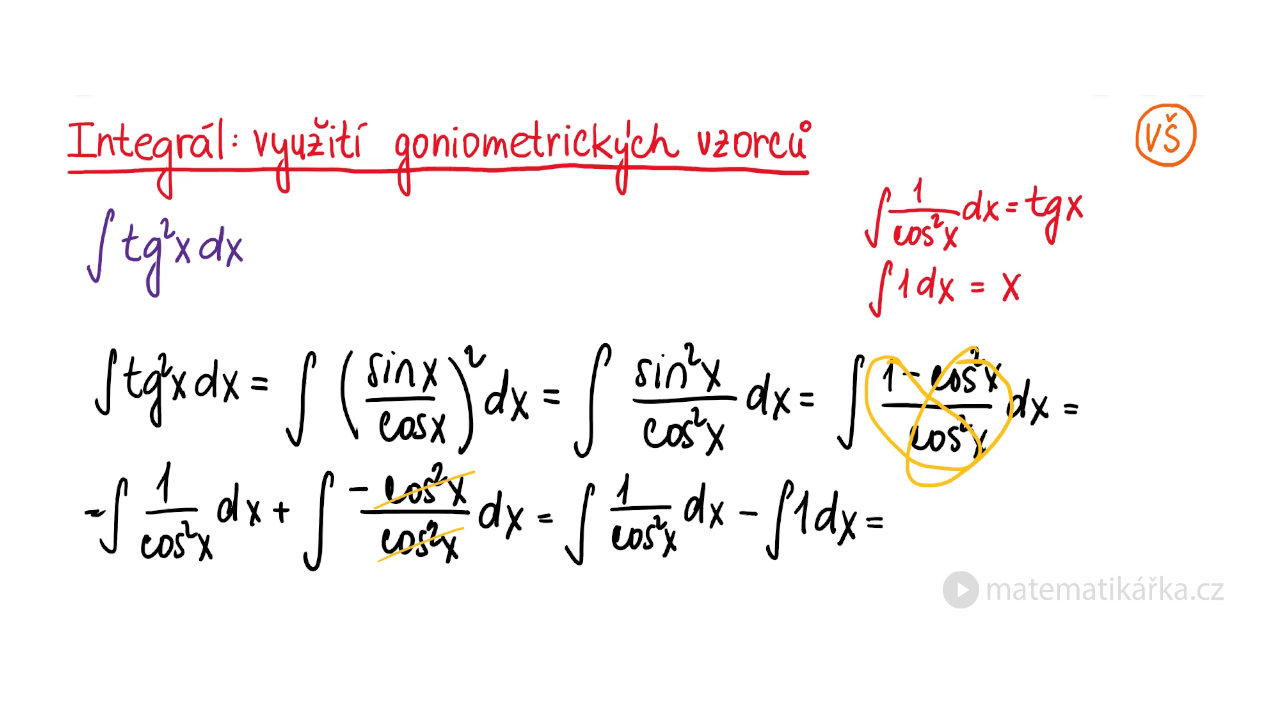 Integrál: využití goniometrických vzorců
VŠ
∫ tg²x dx
∫ 1/cos²x dx = tg x
∫ 1 dx = x
∫ tg²x dx = ∫ (sin x/cos x)² dx = ∫ sin²x/cos²x dx = ∫ (1 - cos²x)/cos²x dx =
= ∫ 1/cos²x dx + ∫ -cos²x/cos²x dx = ∫ 1/cos²x dx - ∫ 1 dx =
matematikářka.cz